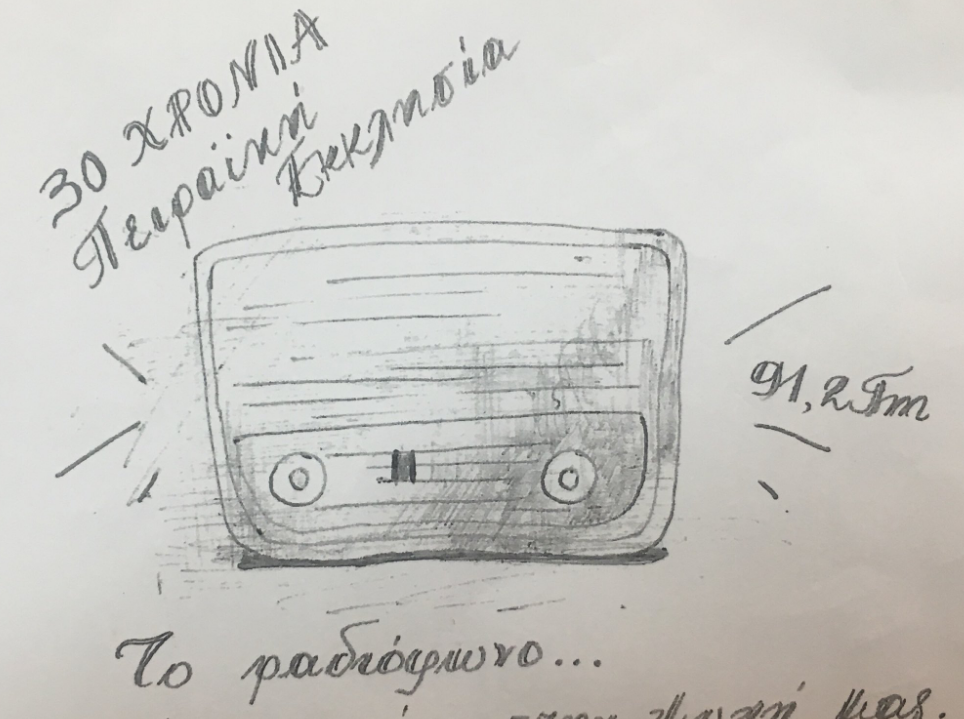 30 ΧΡΟΝΙΑ
Πειραϊκή
Εκκλησία
91,2 Fm
Το ραδιόφωνο...
στην ψυχή μας.